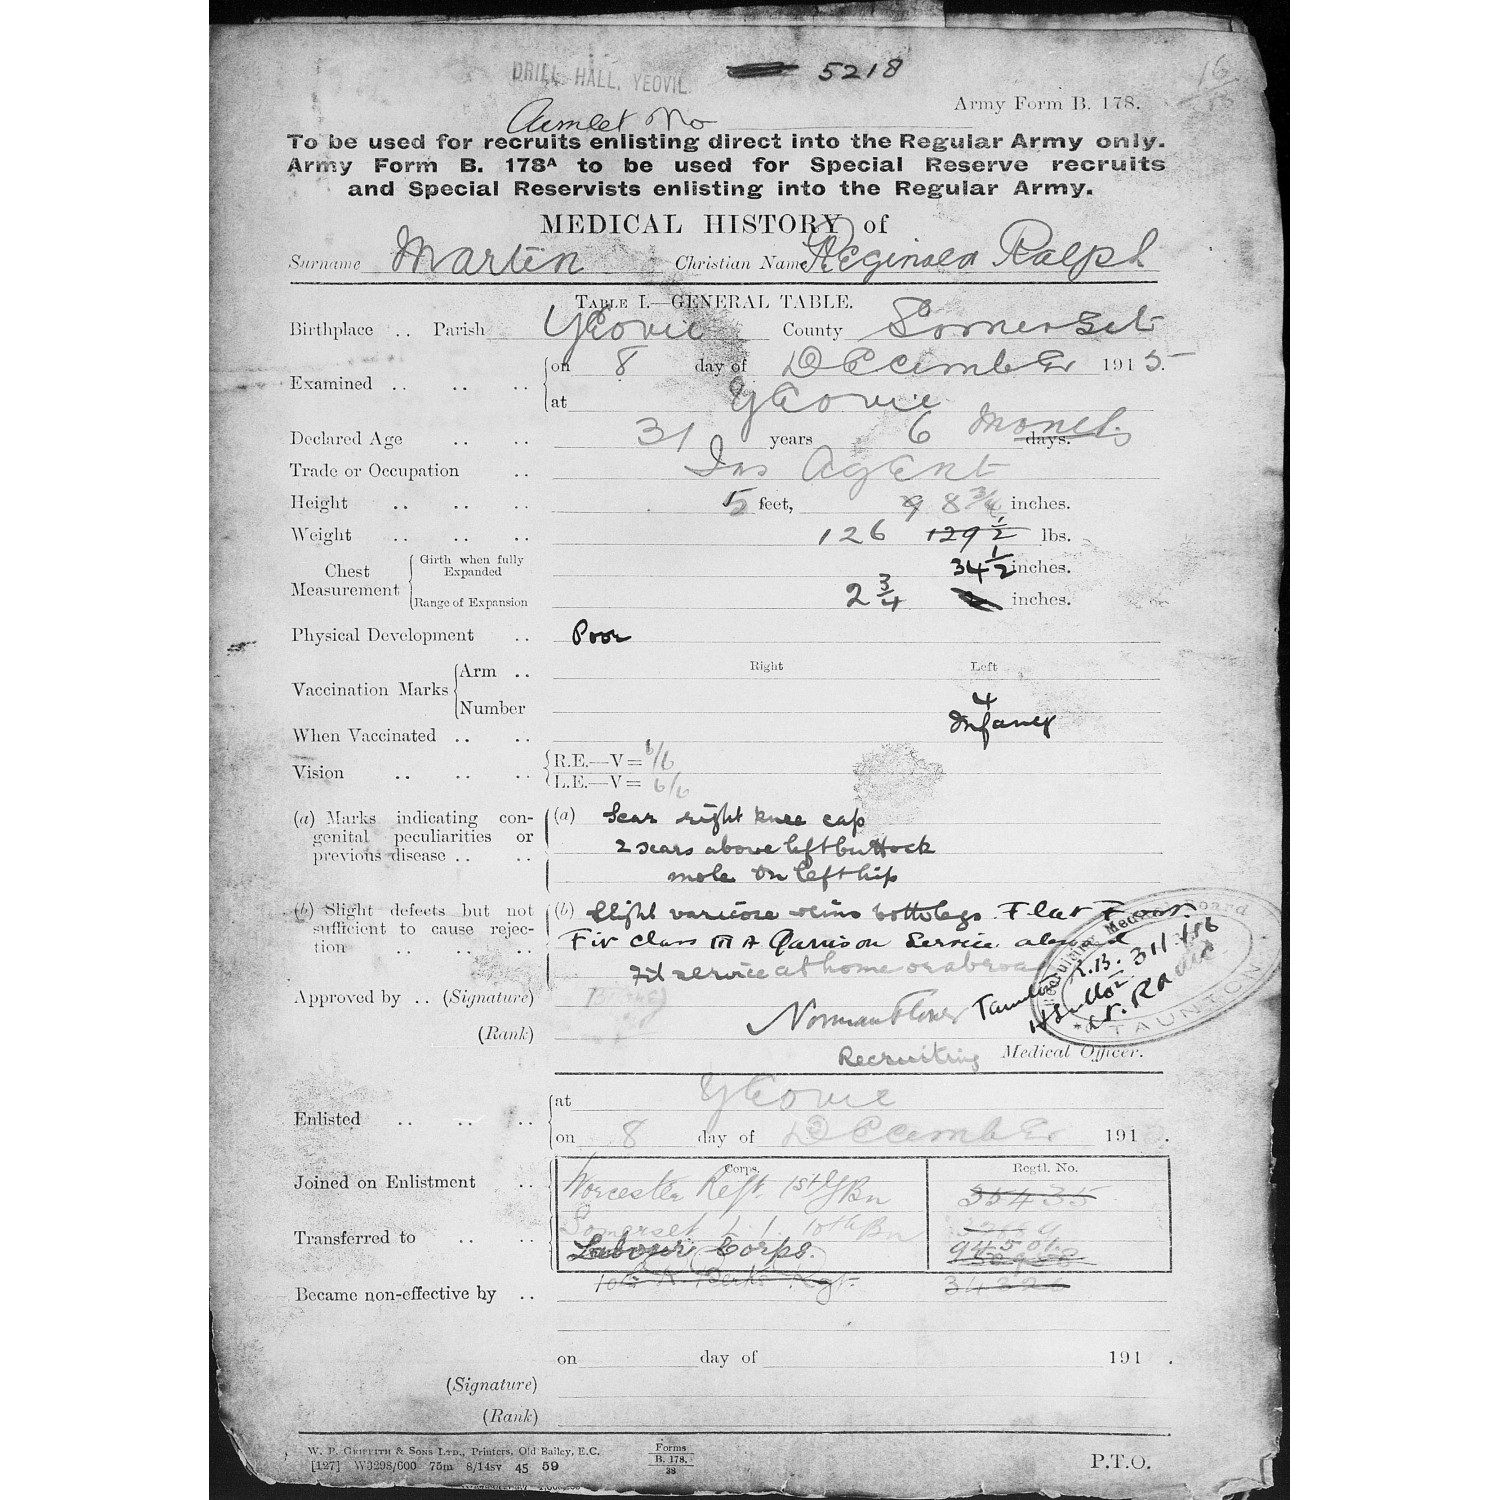 DRILL HALL, YEOVIL.
5218
16
Army Form B. 178.
Armlet No
To be used for recruits enlisting direct into the Regular Army only.
Army Form B. 178A to be used for Special Reserve recruits
and Special Reservists enlisting into the Regular Army.
MEDICAL HISTORY of
Surname Martin Christian Name Reginald Ralph
TABLE I.—GENERAL TABLE.
Birthplace .. Parish Yeovil County Somerset
Examined .. .. .. on 8 day of December 1915.
at Yeovil
Declared Age .. .. 31 years 6 Months days.
Trade or Occupation .. Ins Agent
Height .. .. .. 5 feet, 9 8 3/4 inches.
Weight .. .. .. 126 129 1/2 lbs.
Chest Measurement Girth when fully Expanded 34 1/2 inches.
Range of Expansion 2 3/4 inches.
Physical Development .. Poor
Right Left
Vaccination Marks Arm ..
Number 4
When Vaccinated .. .. Infancy
Vision .. .. .. R.E.—V= 6/6
L.E.—V= 6/6
(a) Marks indicating con- (a) Scar right knee cap
genital peculiarities or 2 scars above left buttock
previous disease .. .. mole on left hip
(b) Slight defects but not (b) Slight varicose veins both legs. Flat Feet.
sufficient to cause rejec- Fit Class III A Garrison Service abroad
tion .. .. .. Fit service at home or abroad
Recruiting Medical Board
TAUNTON
Approved by .. (Signature) Norman Taunton
(Rank)
Recruiting Medical Officer.
Enlisted .. .. .. at Yeovil
on 8 day of December 191 .
Corps. Regtl. No.
Joined on Enlistment .. Worcester Regt. 1st G Bn 35435
Transferred to .. .. Somerset L.I. 10th Bn
Labour Corps. 94501.
Became non-effective by .. 10th R. Berks Regt. 34826
on day of 191 .
(Signature)
(Rank)
W. P. GRIFFITH & SONS LTD., Printers, Old Bailey, E.C.
[127] W3298/600 75m 8/14sv 45 59
Forms
B. 178.
38
P.T.O.